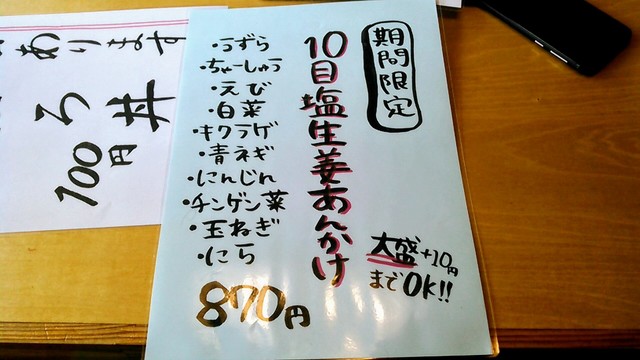 期間限定
10目塩生姜あんかけ
・うずら
・ちゃーしゅう
・えび
・白菜
・キクラゲ
・青ネギ
・にんじん
・チンゲン菜
・玉ねぎ
・にら
870円
大盛+10円
までOK!!
あります
ろ丼
100円